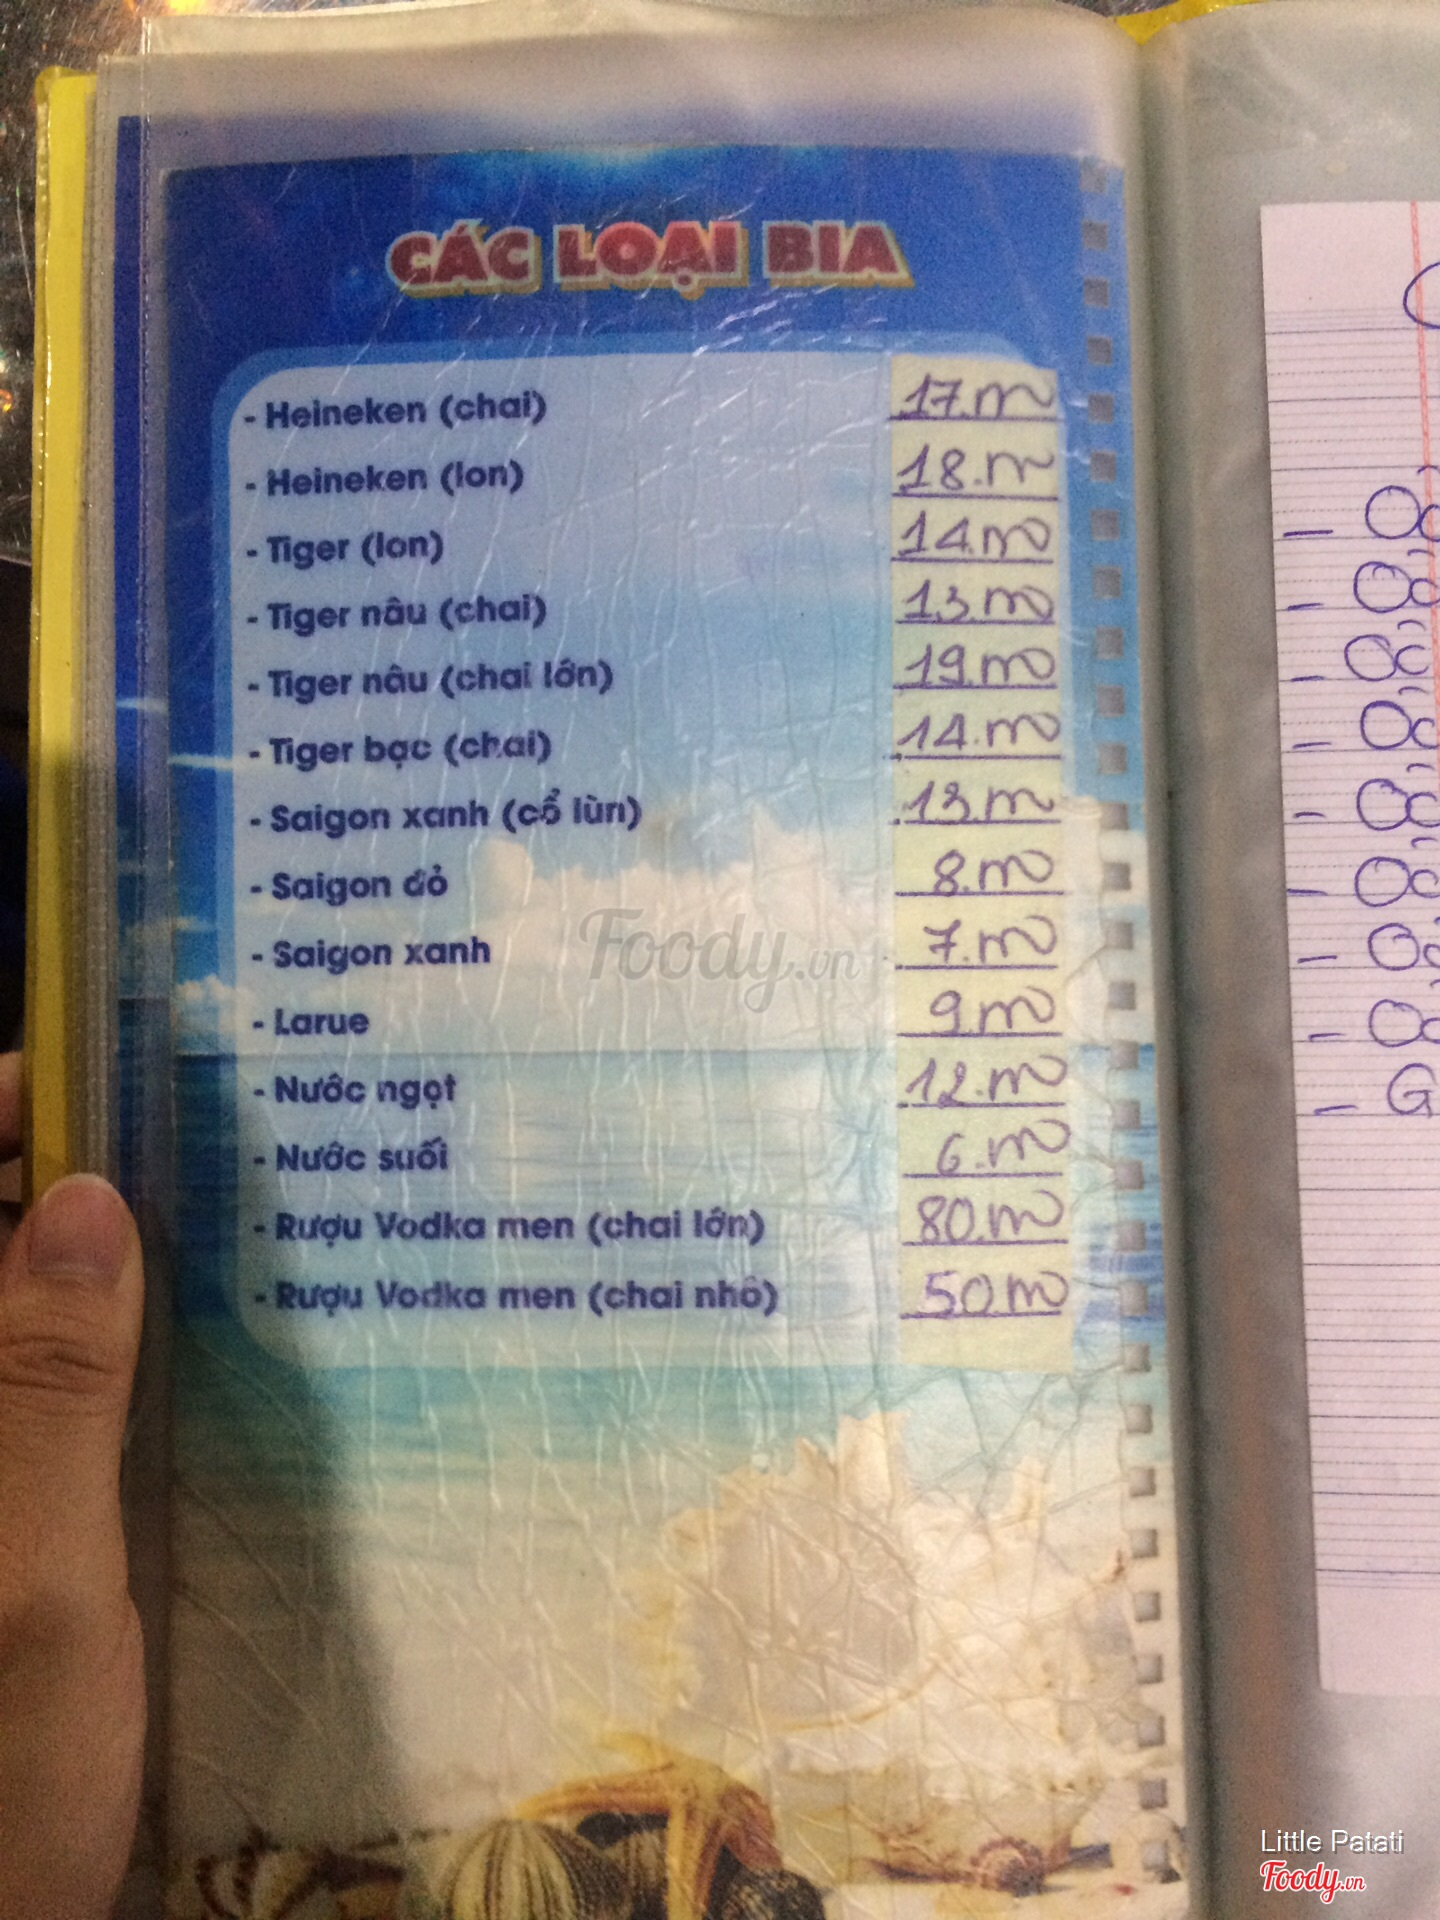 CÁC LOẠI BIA
- Heineken (chai) 17.m
- Heineken (lon) 18.m
- Tiger (lon) 14.m
- Tiger nâu (chai) 13.m
- Tiger nâu (chai lớn) 19.m
- Tiger bạc (chai) 14.m
- Saigon xanh (cổ lùn) 13.m
- Saigon đỏ 8.m
- Saigon xanh 7.m
- Larue 9.m
- Nước ngọt 12.m
- Nước suối 6.m
- Rượu Vodka men (chai lớn) 80.m
- Rượu Vodka men (chai nhỏ) 50.m
Foody.vn
Little Patati
Foody.vn